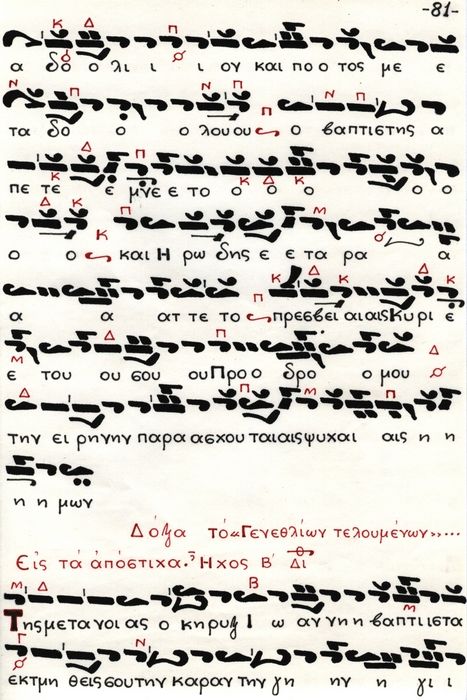 -81-
α δο ο λι ι ι ου και πο ο τος με ε
τα δο ο ο λου ου ο βαπτιστης α
πε τε ε μνε ε το ο ο ο ο ο
ο ο και Η ρω δης ε ε τα ρα α
α α ατ τε το πρεσβει αι αις Κυρι ε
ε του ου σου ου Προ ο δρο ο μου
την ει ρηνην παρα ασχου ται αις ψυχαι αις η η
η η μων
Δόξα τό «Γενεθλίων τελουμένων»...
Εἰς τά ἀπόστιχα. Ἦχος Β΄ Δι
Της μετανοι ας ο κηρυξ Ι ω αν νη η βαπτι ιστα
εκτμη θεις σου την καραν την γη ην η γι ι